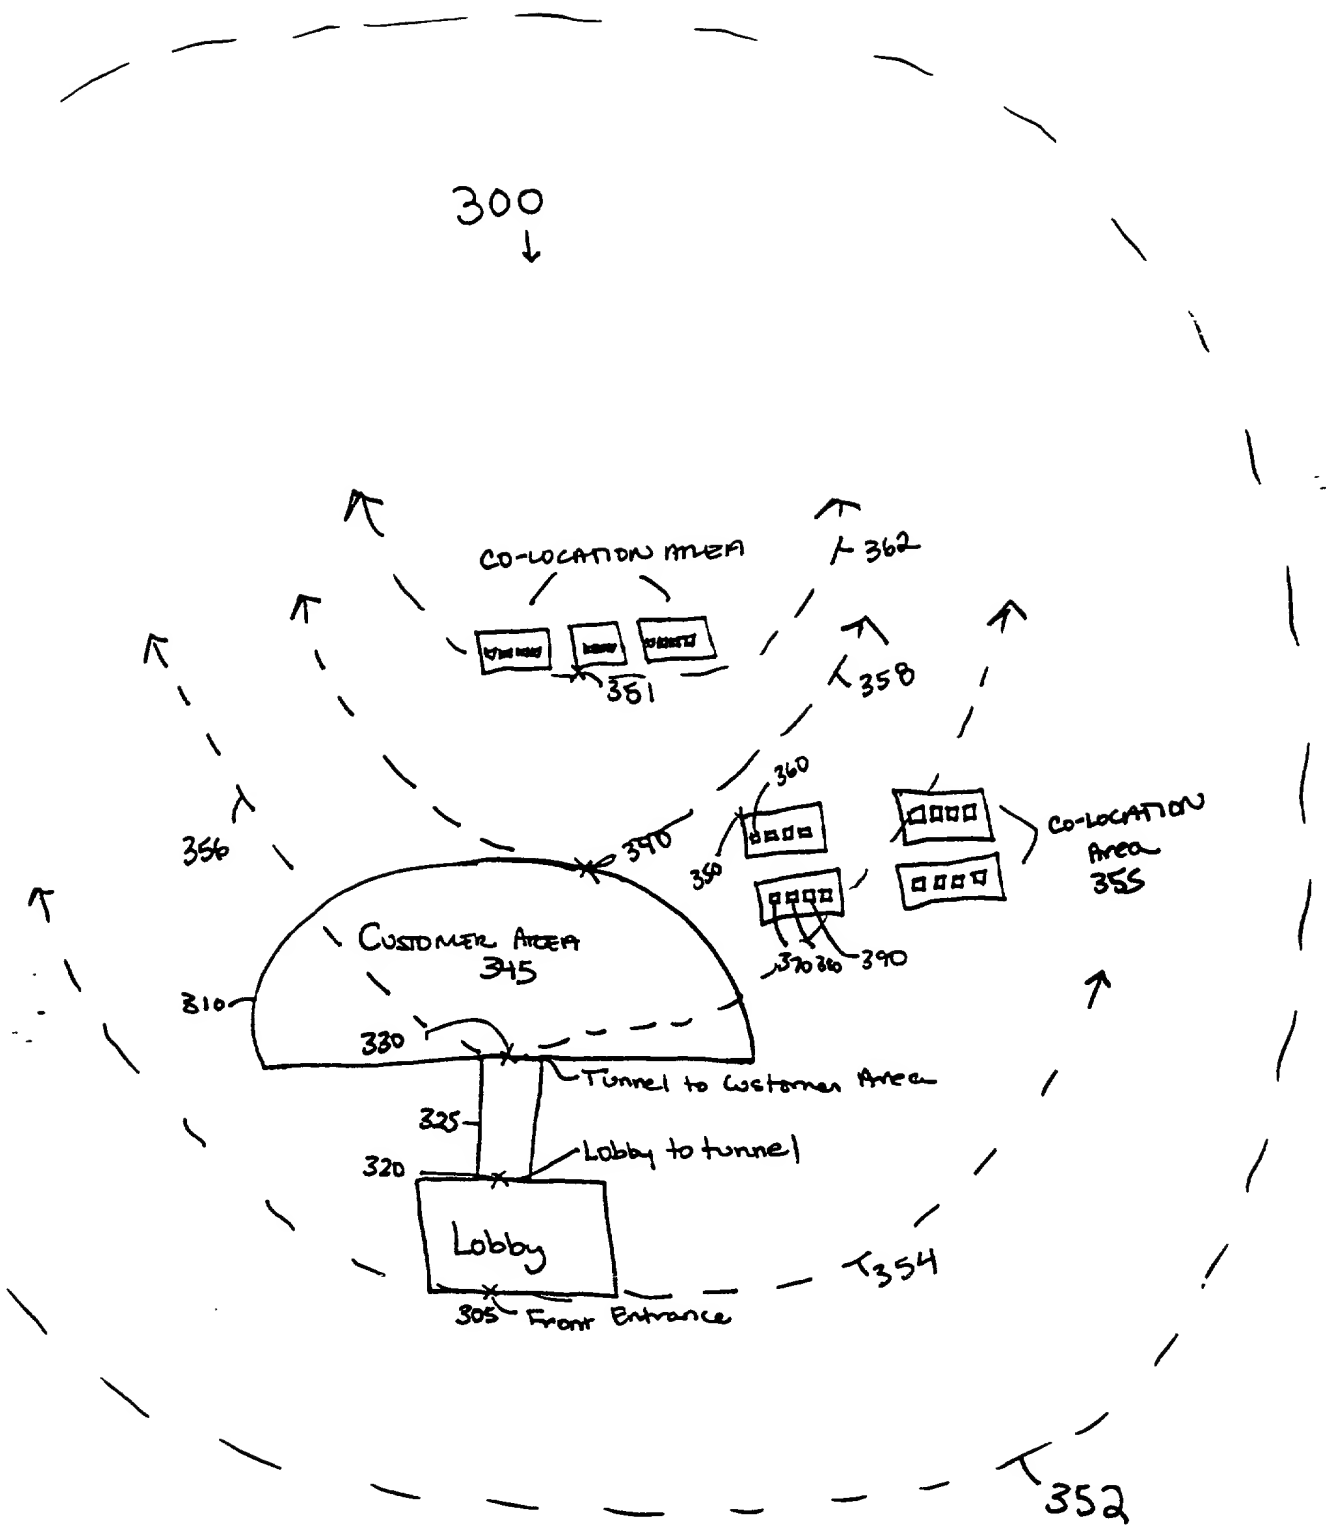 300
CO-LOCATION AREA
362
351
358
360
350
CO-LOCATION
Area
355
356
390
370 380 390
CUSTOMER AREA
345
310
330
Tunnel to Customer Area
325
Lobby to tunnel
320
Lobby
354
305 Front Entrance
352